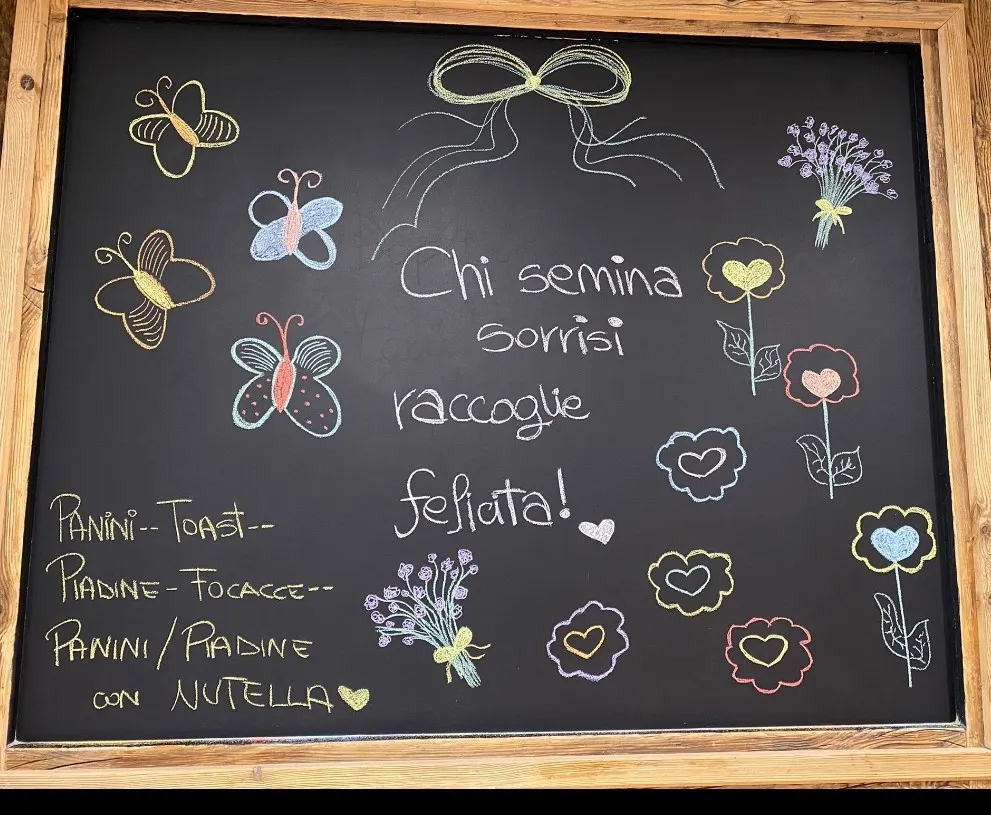 Chi semina
sorrisi
raccoglie
felicita!
PANINI--TOAST--
PIADINE-FOCACCE--
PANINI/PIADINE
CON NUTELLA